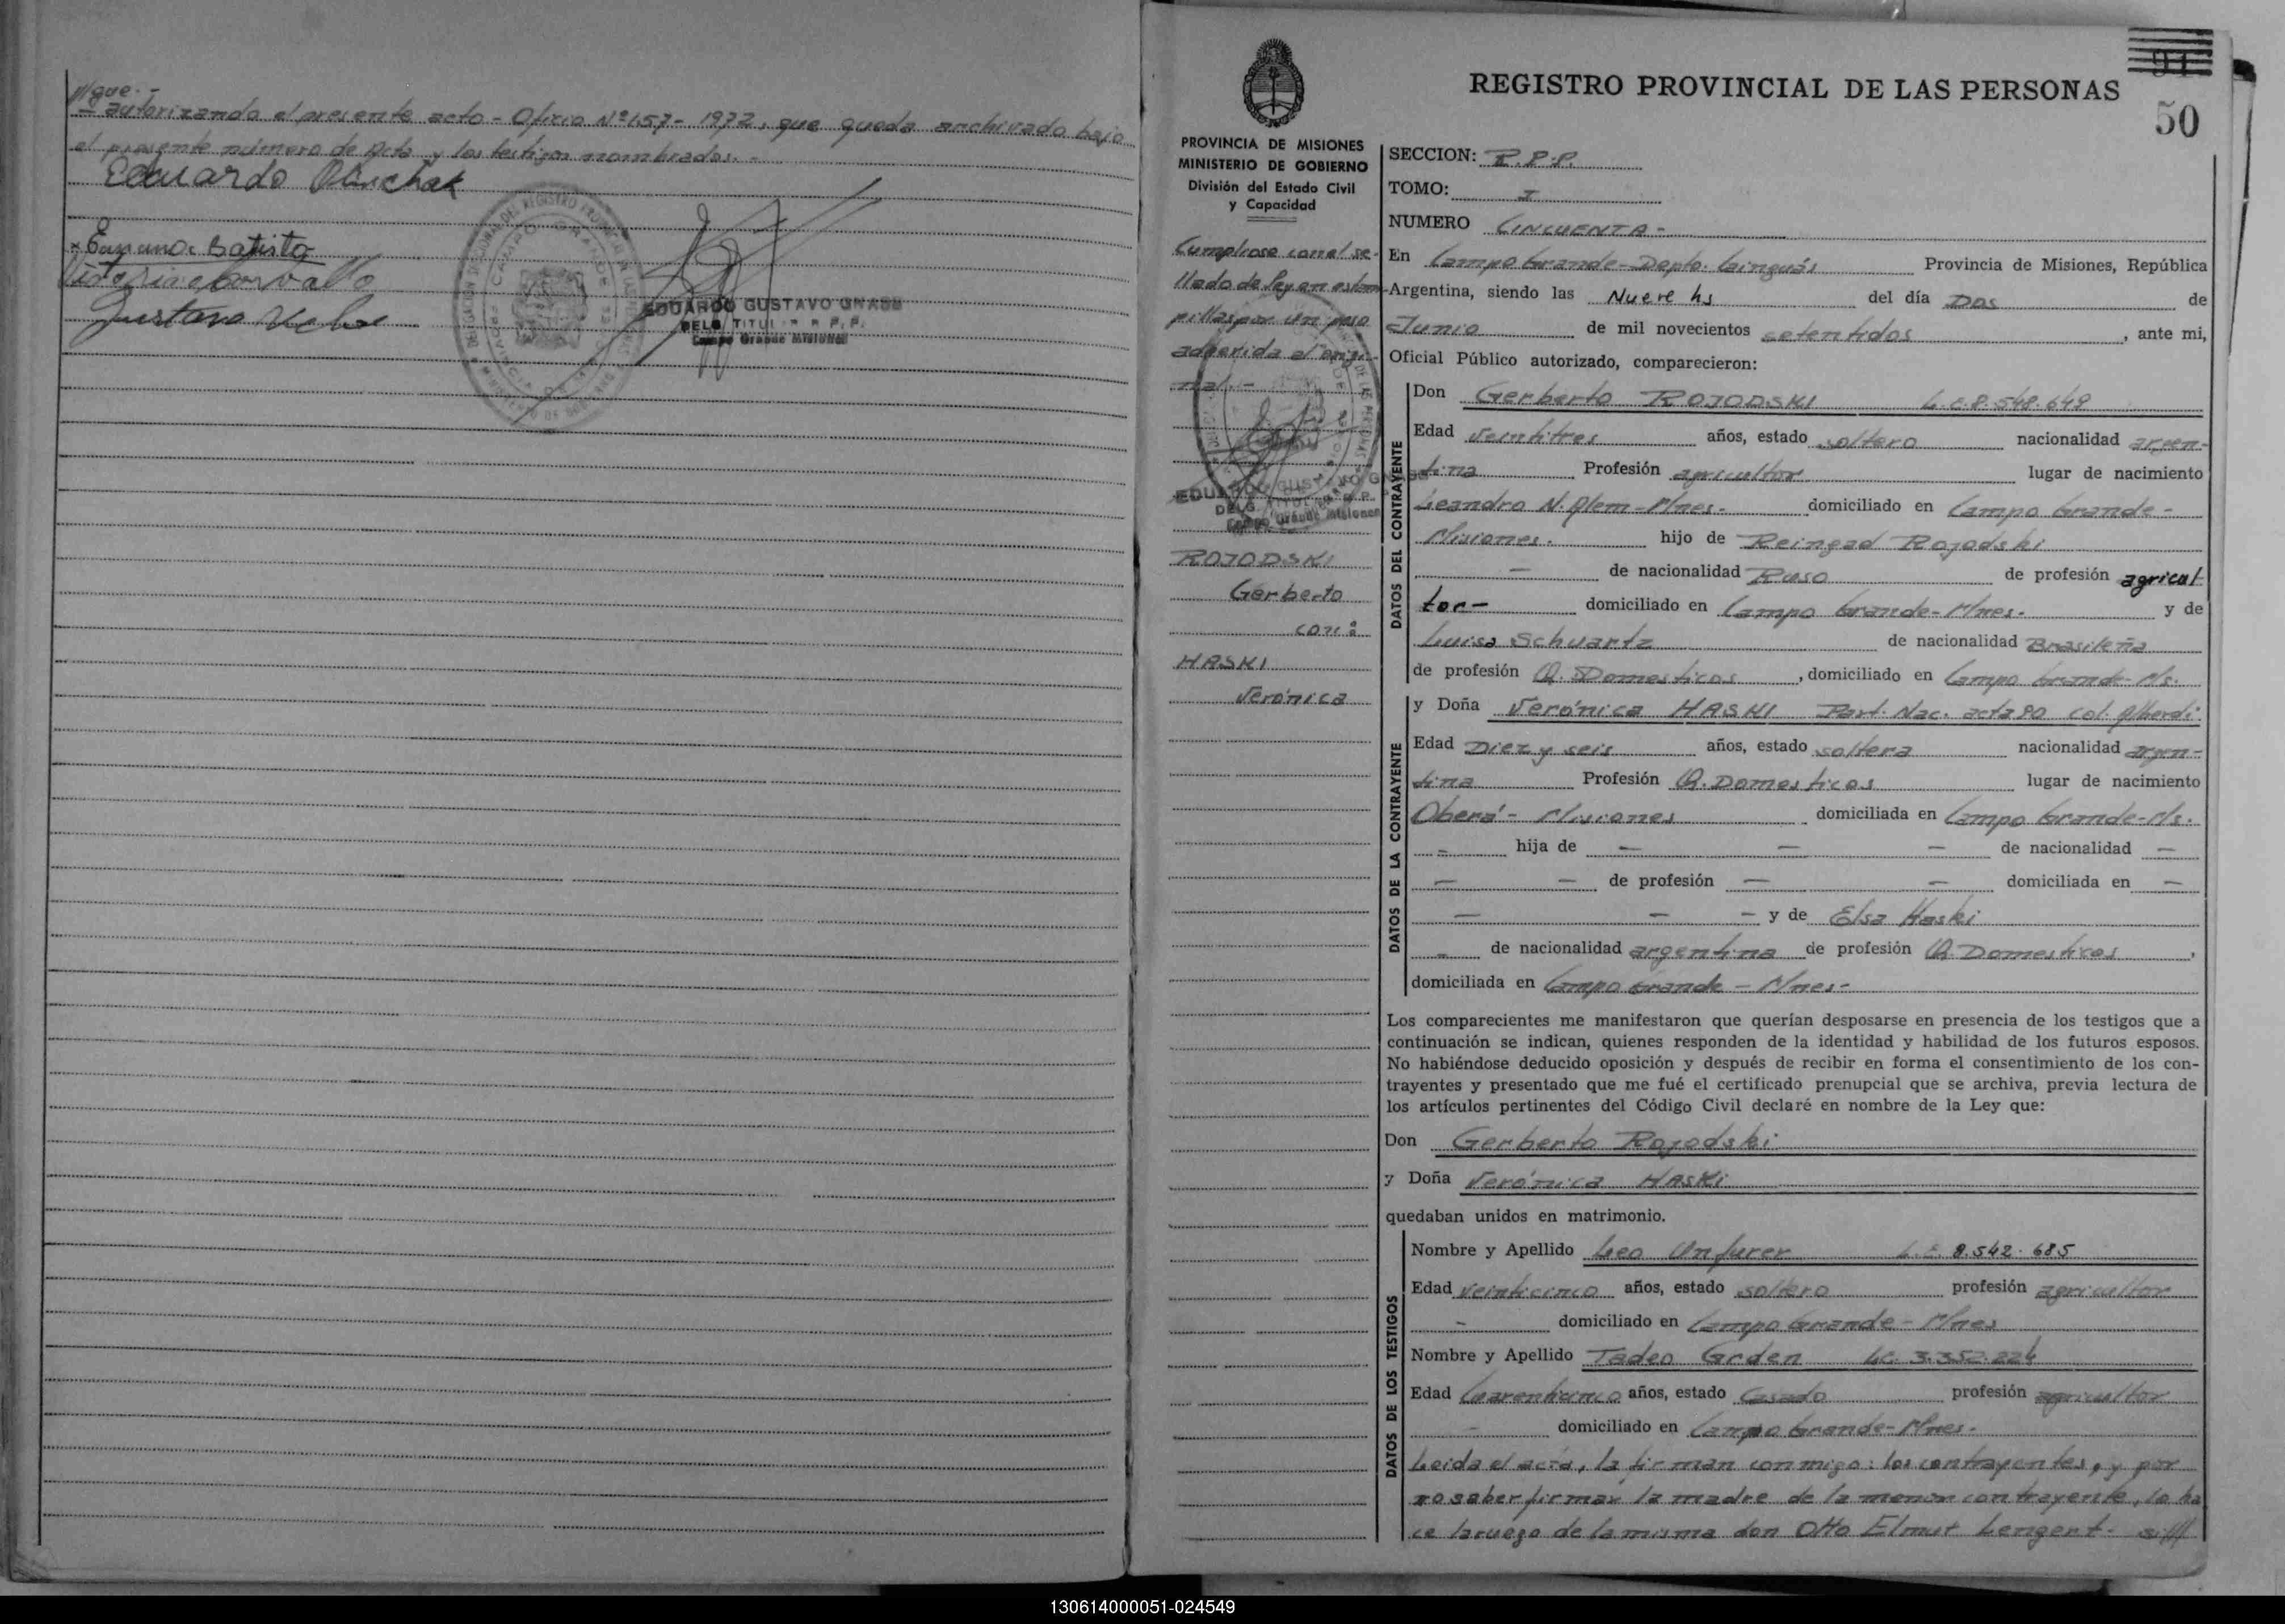 //gue.-
- autorizando el presente acto - Oficio Nº 157 - 1972, que queda archivado bajo
el presente número de Acta y los testigos nombrados. -
Eduardo
Batista
Gustavo
EDUARDO GUSTAVO
DELG. TITUL R. P. P.
Campo Grande Misiones
91
50
REGISTRO PROVINCIAL DE LAS PERSONAS
PROVINCIA DE MISIONES
MINISTERIO DE GOBIERNO
División del Estado Civil
y Capacidad
Cumpliose con el se-
llado de ley en estam-
pillas por un peso
adherida al origi-
nal. -
EDUARDO GUSTAVO
DELG. TITUL R. P.
Campo Grande Misiones
ROJODSKI
Gerberto
con:
HASKI
Verónica
SECCION: R.P.P.
TOMO: I
NUMERO CINCUENTA -
En Campo Grande - Depto. Cainguás Provincia de Misiones, República
Argentina, siendo las Nueve hs del día Dos de
Junio de mil novecientos setentidos, ante mi,
Oficial Público autorizado, comparecieron:
DATOS DEL CONTRAYENTE
Don Gerberto ROJODSKI L.E. 8.548.649
Edad veintitres años, estado soltero nacionalidad argen-
tina Profesión agricultor lugar de nacimiento
Leandro N. Alem - Mnes. - domiciliado en Campo Grande -
Misiones. hijo de Reingad Rojodski
- de nacionalidad Ruso de profesión agricul-
tor- domiciliado en Campo Grande - Mnes. y de
Luisa Schuartz de nacionalidad Brasileña
de profesión Q. Domesticos, domiciliado en Campo Grande - Ms.
DATOS DE LA CONTRAYENTE
y Doña Verónica HASKI Part. Nac. acta 80 col. Alberdi.
Edad Diez y seis años, estado soltera nacionalidad argen-
tina Profesión Q. Domesticos lugar de nacimiento
Oberá - Misiones domiciliada en Campo Grande - Ms.
- hija de - - - de nacionalidad -
- - de profesión - - domiciliada en -
- - - y de Elsa Haski
- de nacionalidad argentina de profesión Q. Domesticos,
domiciliada en Campo Grande - Mnes -
Los comparecientes me manifestaron que querían desposarse en presencia de los testigos que a
continuación se indican, quienes responden de la identidad y habilidad de los futuros esposos.
No habiéndose deducido oposición y después de recibir en forma el consentimiento de los con-
trayentes y presentado que me fué el certificado prenupcial que se archiva, previa lectura de
los artículos pertinentes del Código Civil declaré en nombre de la Ley que:
Don Gerberto Rojodski
y Doña Verónica HASKi
quedaban unidos en matrimonio.
DATOS DE LOS TESTIGOS
Nombre y Apellido Leo Unfurer L.E. 8.542.685
Edad veinticinco años, estado soltero profesión agricultor
- domiciliado en Campo Grande - Mnes
Nombre y Apellido Tadeo Grden 3.352.224
Edad Cuarenticinco años, estado Casado profesión agricultor
- domiciliado en Campo Grande - Mnes.
Leida el acta, la firman conmigo: los contrayentes, y por
no saber firmar la madre de la menor contrayente, lo ha
ce a ruego de la misma don Otto Elmut Lengert - si///
130614000051-024549